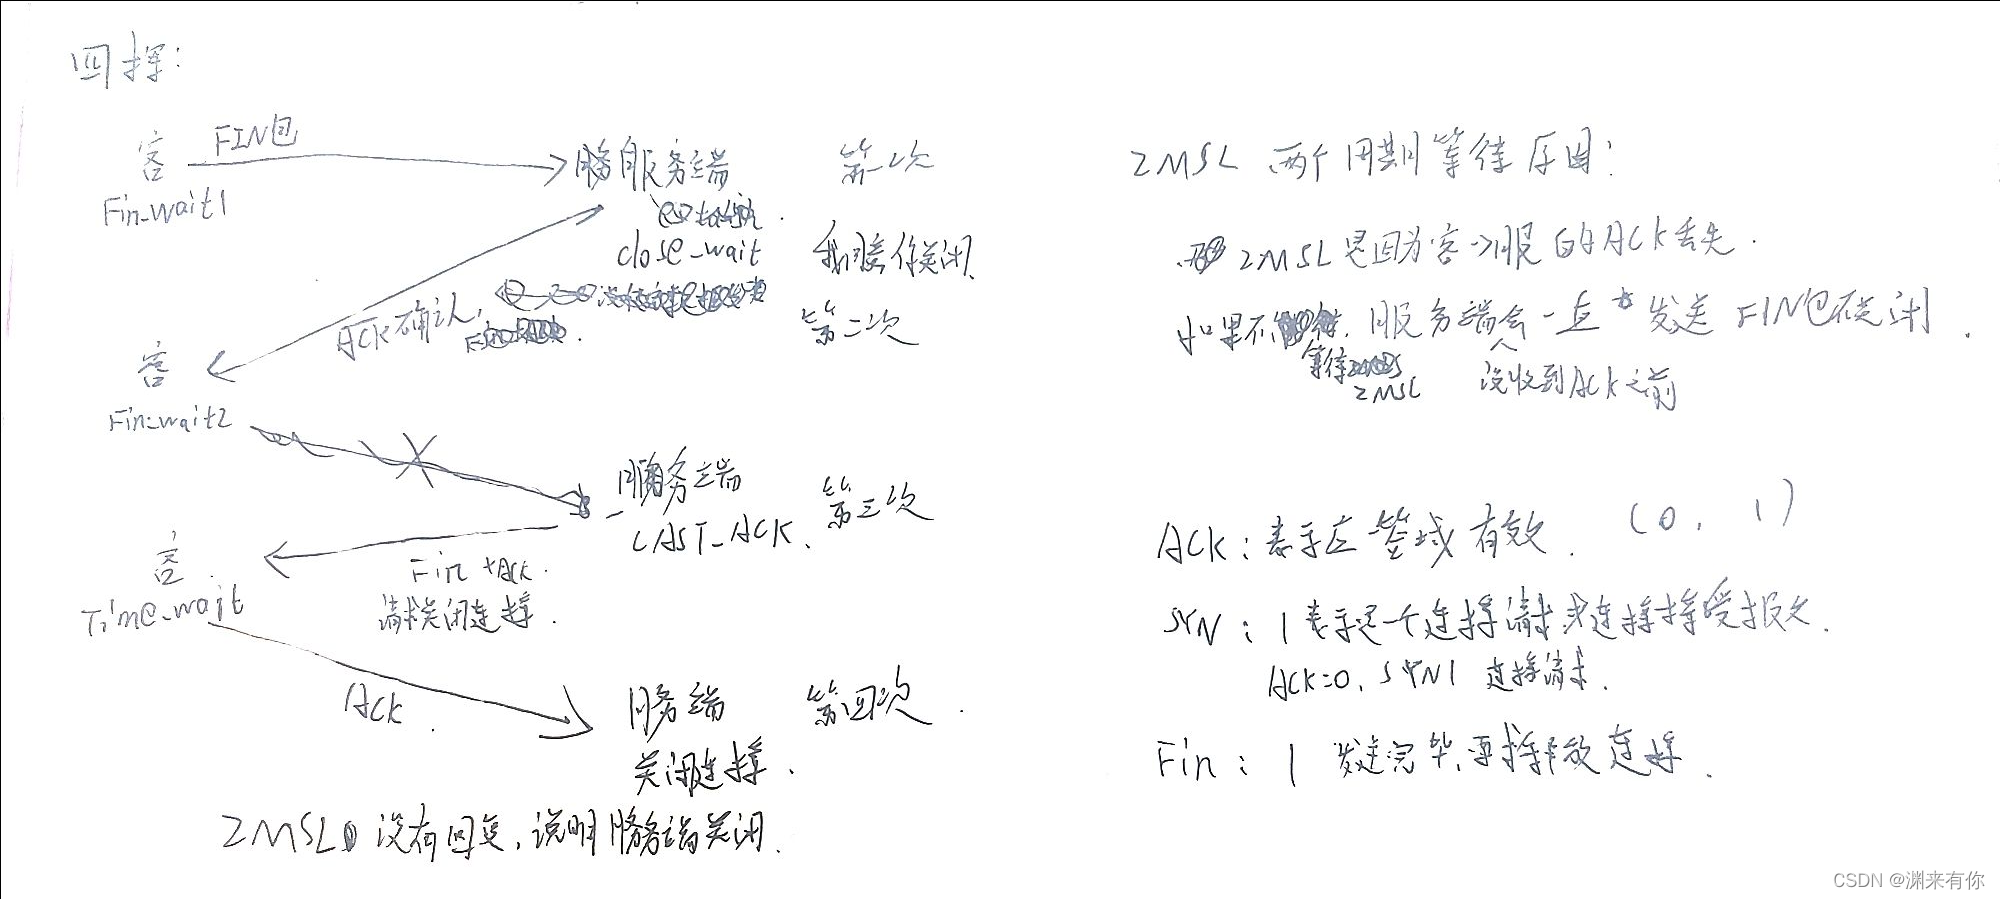 四挥:
客 FIN包 服务端 第一次
Fin_wait1
close_wait 我同意你关闭.
ACK确认, 第二次
客
Fin_wait2
服务端 第三次
LAST_ACK.
客
Time_wait
Fin +Ack.
请求关闭连接.
ACK
服务端 第四次.
关闭连接.
2MSL 没有回复,说明服务端关闭.
2MSL 两个周期等待原因:
2MSL是因为客->服的ACK丢失.
如果不 服务端会一直发送 FIN包在关闭.
等待
2MSL
没收到ACK之前
ACK: 表示应答域有效. (0, 1)
SYN: 1表示是一个连接请求或连接接受报文.
ACK=0, SYN1 连接请求.
Fin: 1 发送完毕,要求释放连接.
CSDN @渊来有你